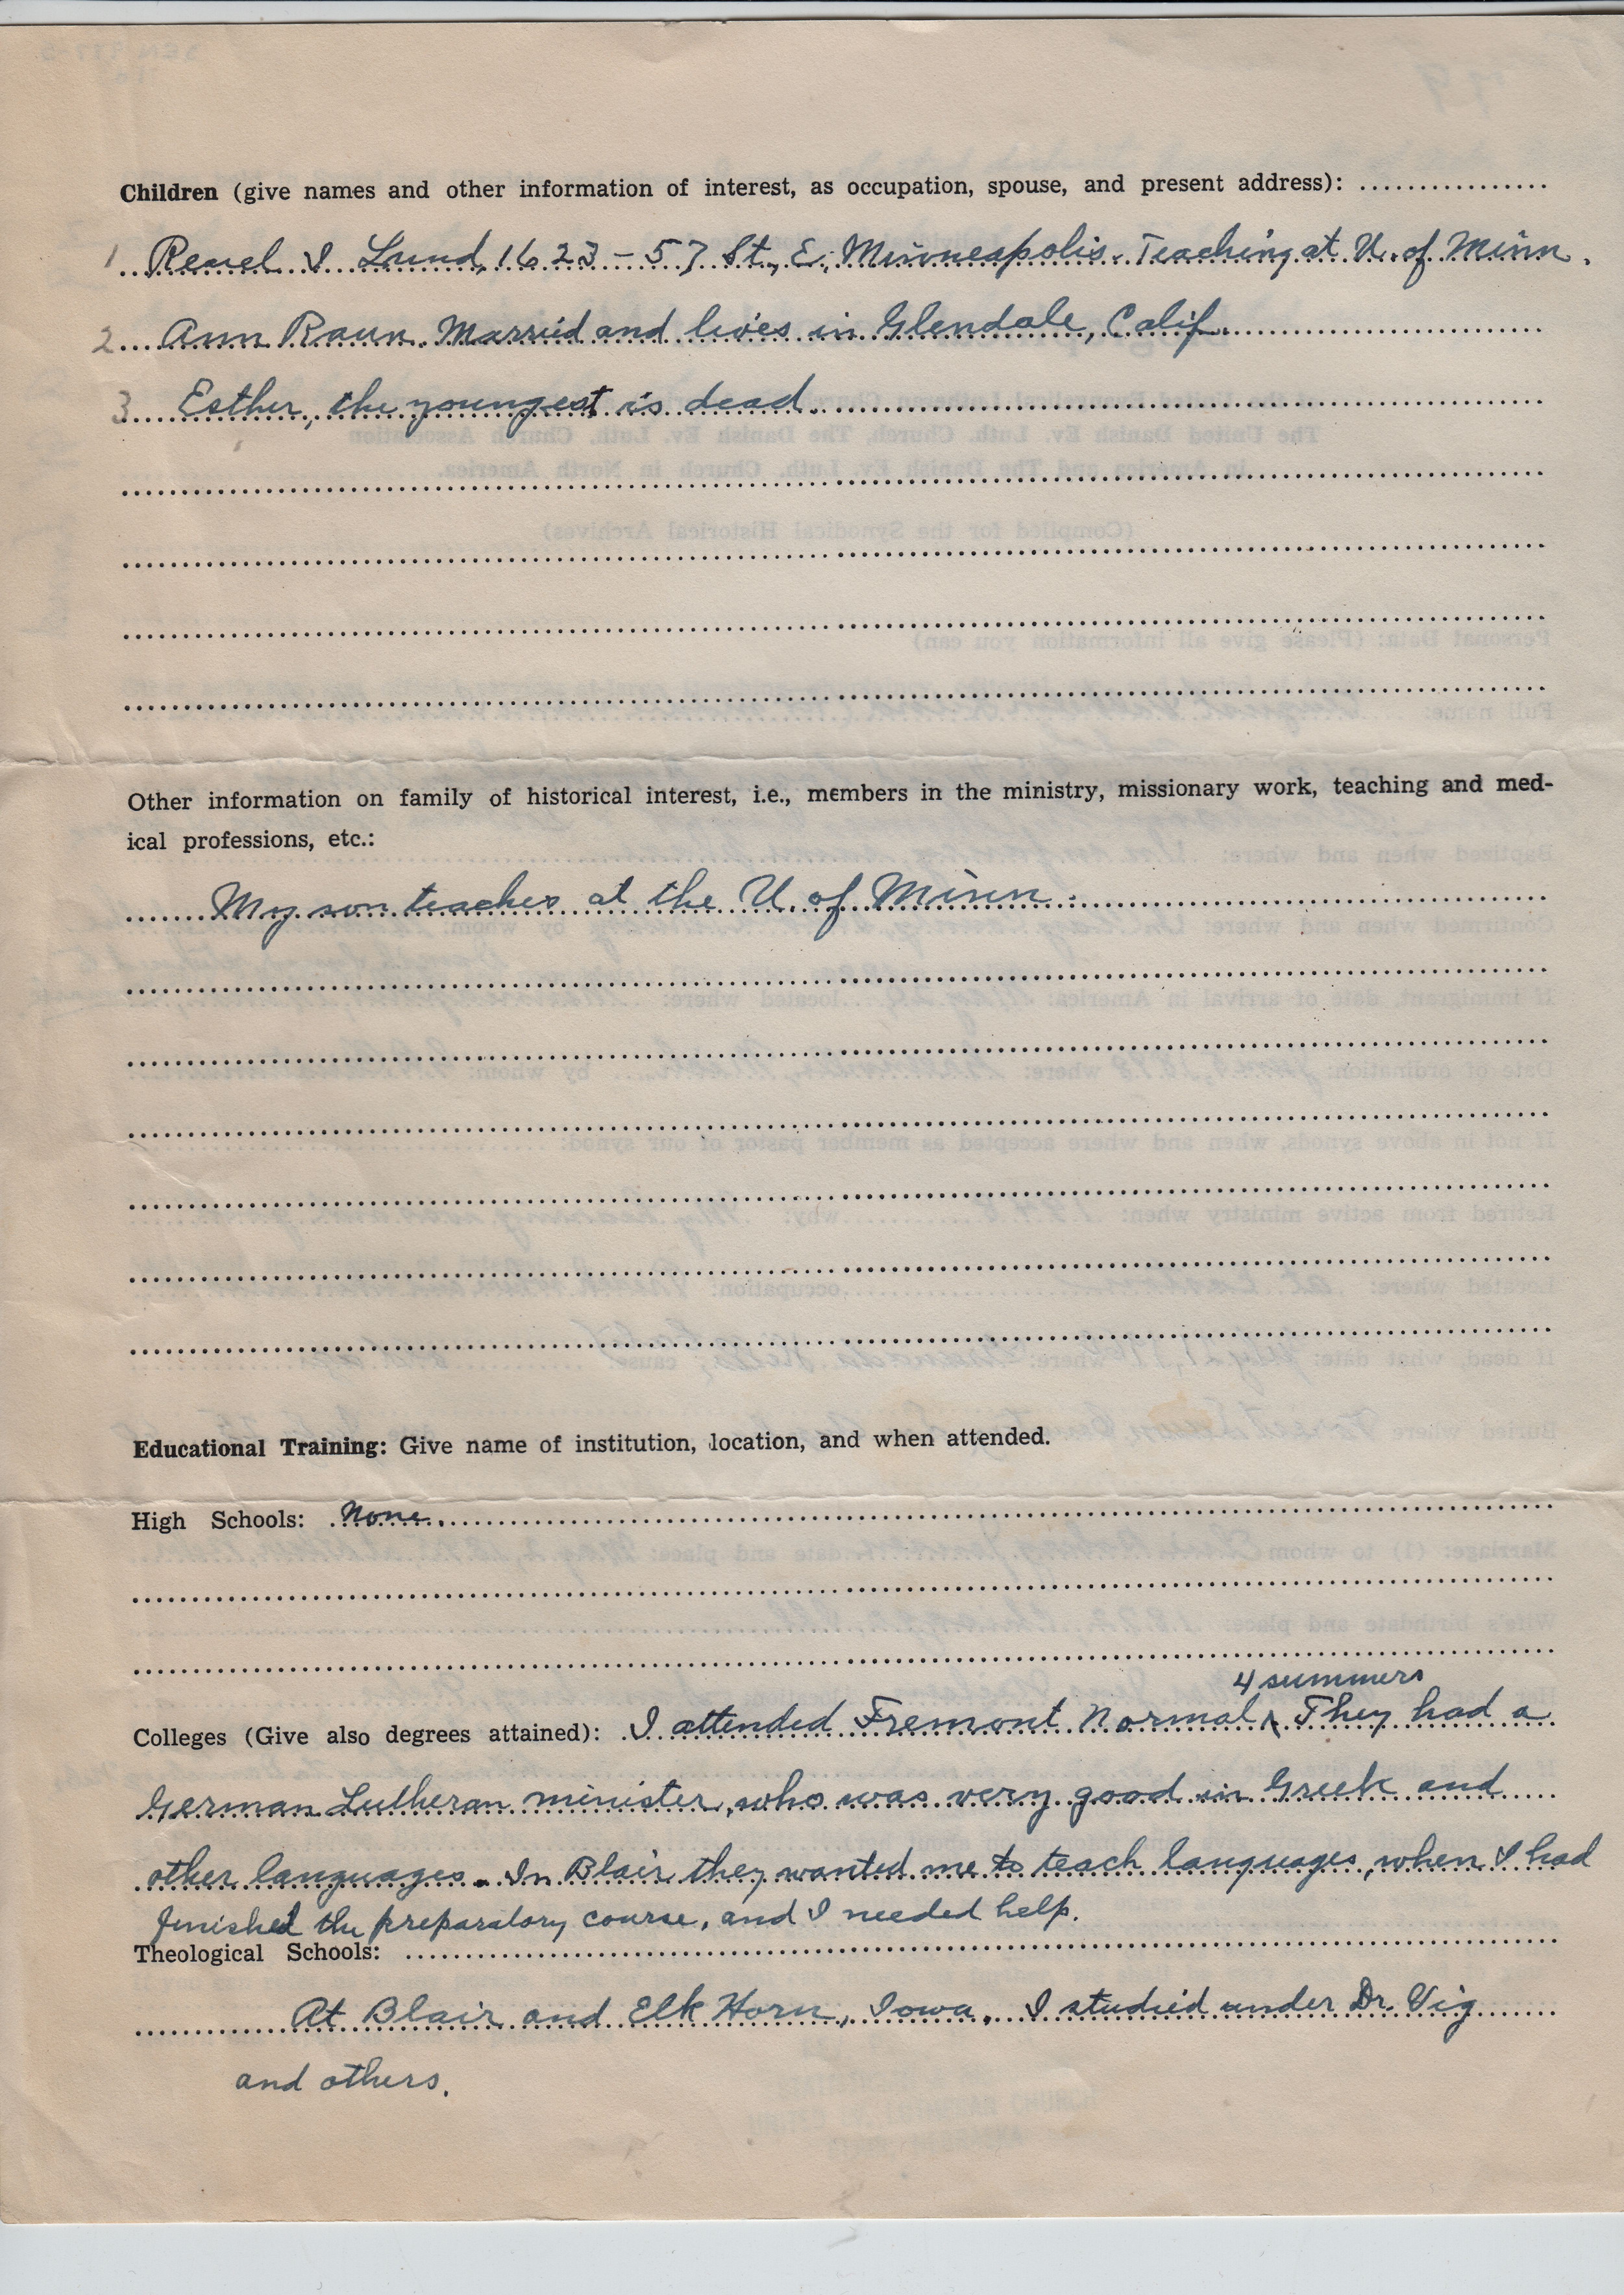 Children (give names and other information of interest, as occupation, spouse, and present address):
1 Reuel I Lund, 1623 - 57 St., E. Minneapolis. Teaching at U. of Minn.
2 Ann Raun. Married and lives in Glendale, Calif.
3 Esther, the youngest is dead.
Other information on family of historical interest, i.e., members in the ministry, missionary work, teaching and med-
ical professions, etc.:
My son teaches at the U. of Minn.
Educational Training: Give name of institution, location, and when attended.
High Schools: None.
4 summers
Colleges (Give also degrees attained): I attended Fremont Normal ^ They had a
German Lutheran minister, who was very good in Greek and
other languages. In Blair they wanted me to teach languages, when I had
finished the preparatory course, and I needed help.
Theological Schools:
At Blair and Elk Horn, Iowa. I studied under Dr. Vig
and others.